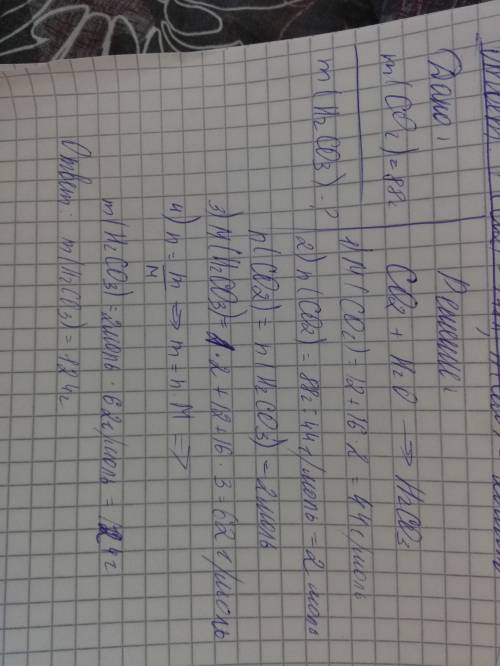 Дано:
m(CO2)=88г
m(H2CO3)-?
Решение:
CO2 + H2O → H2CO3
1) M(CO2)=12+16·2 = 44г/моль
2) n(CO2)= 88г : 44г/моль = 2 моль
n(CO2)= n(H2CO3)= 2моль
3) M(H2CO3)= 1·2+12+16·3=62г/моль
4) n = m/M ⇒ m = n M ⇒
m(H2CO3)= 2моль · 62г/моль = 124г
Ответ: m(H2CO3)=124г